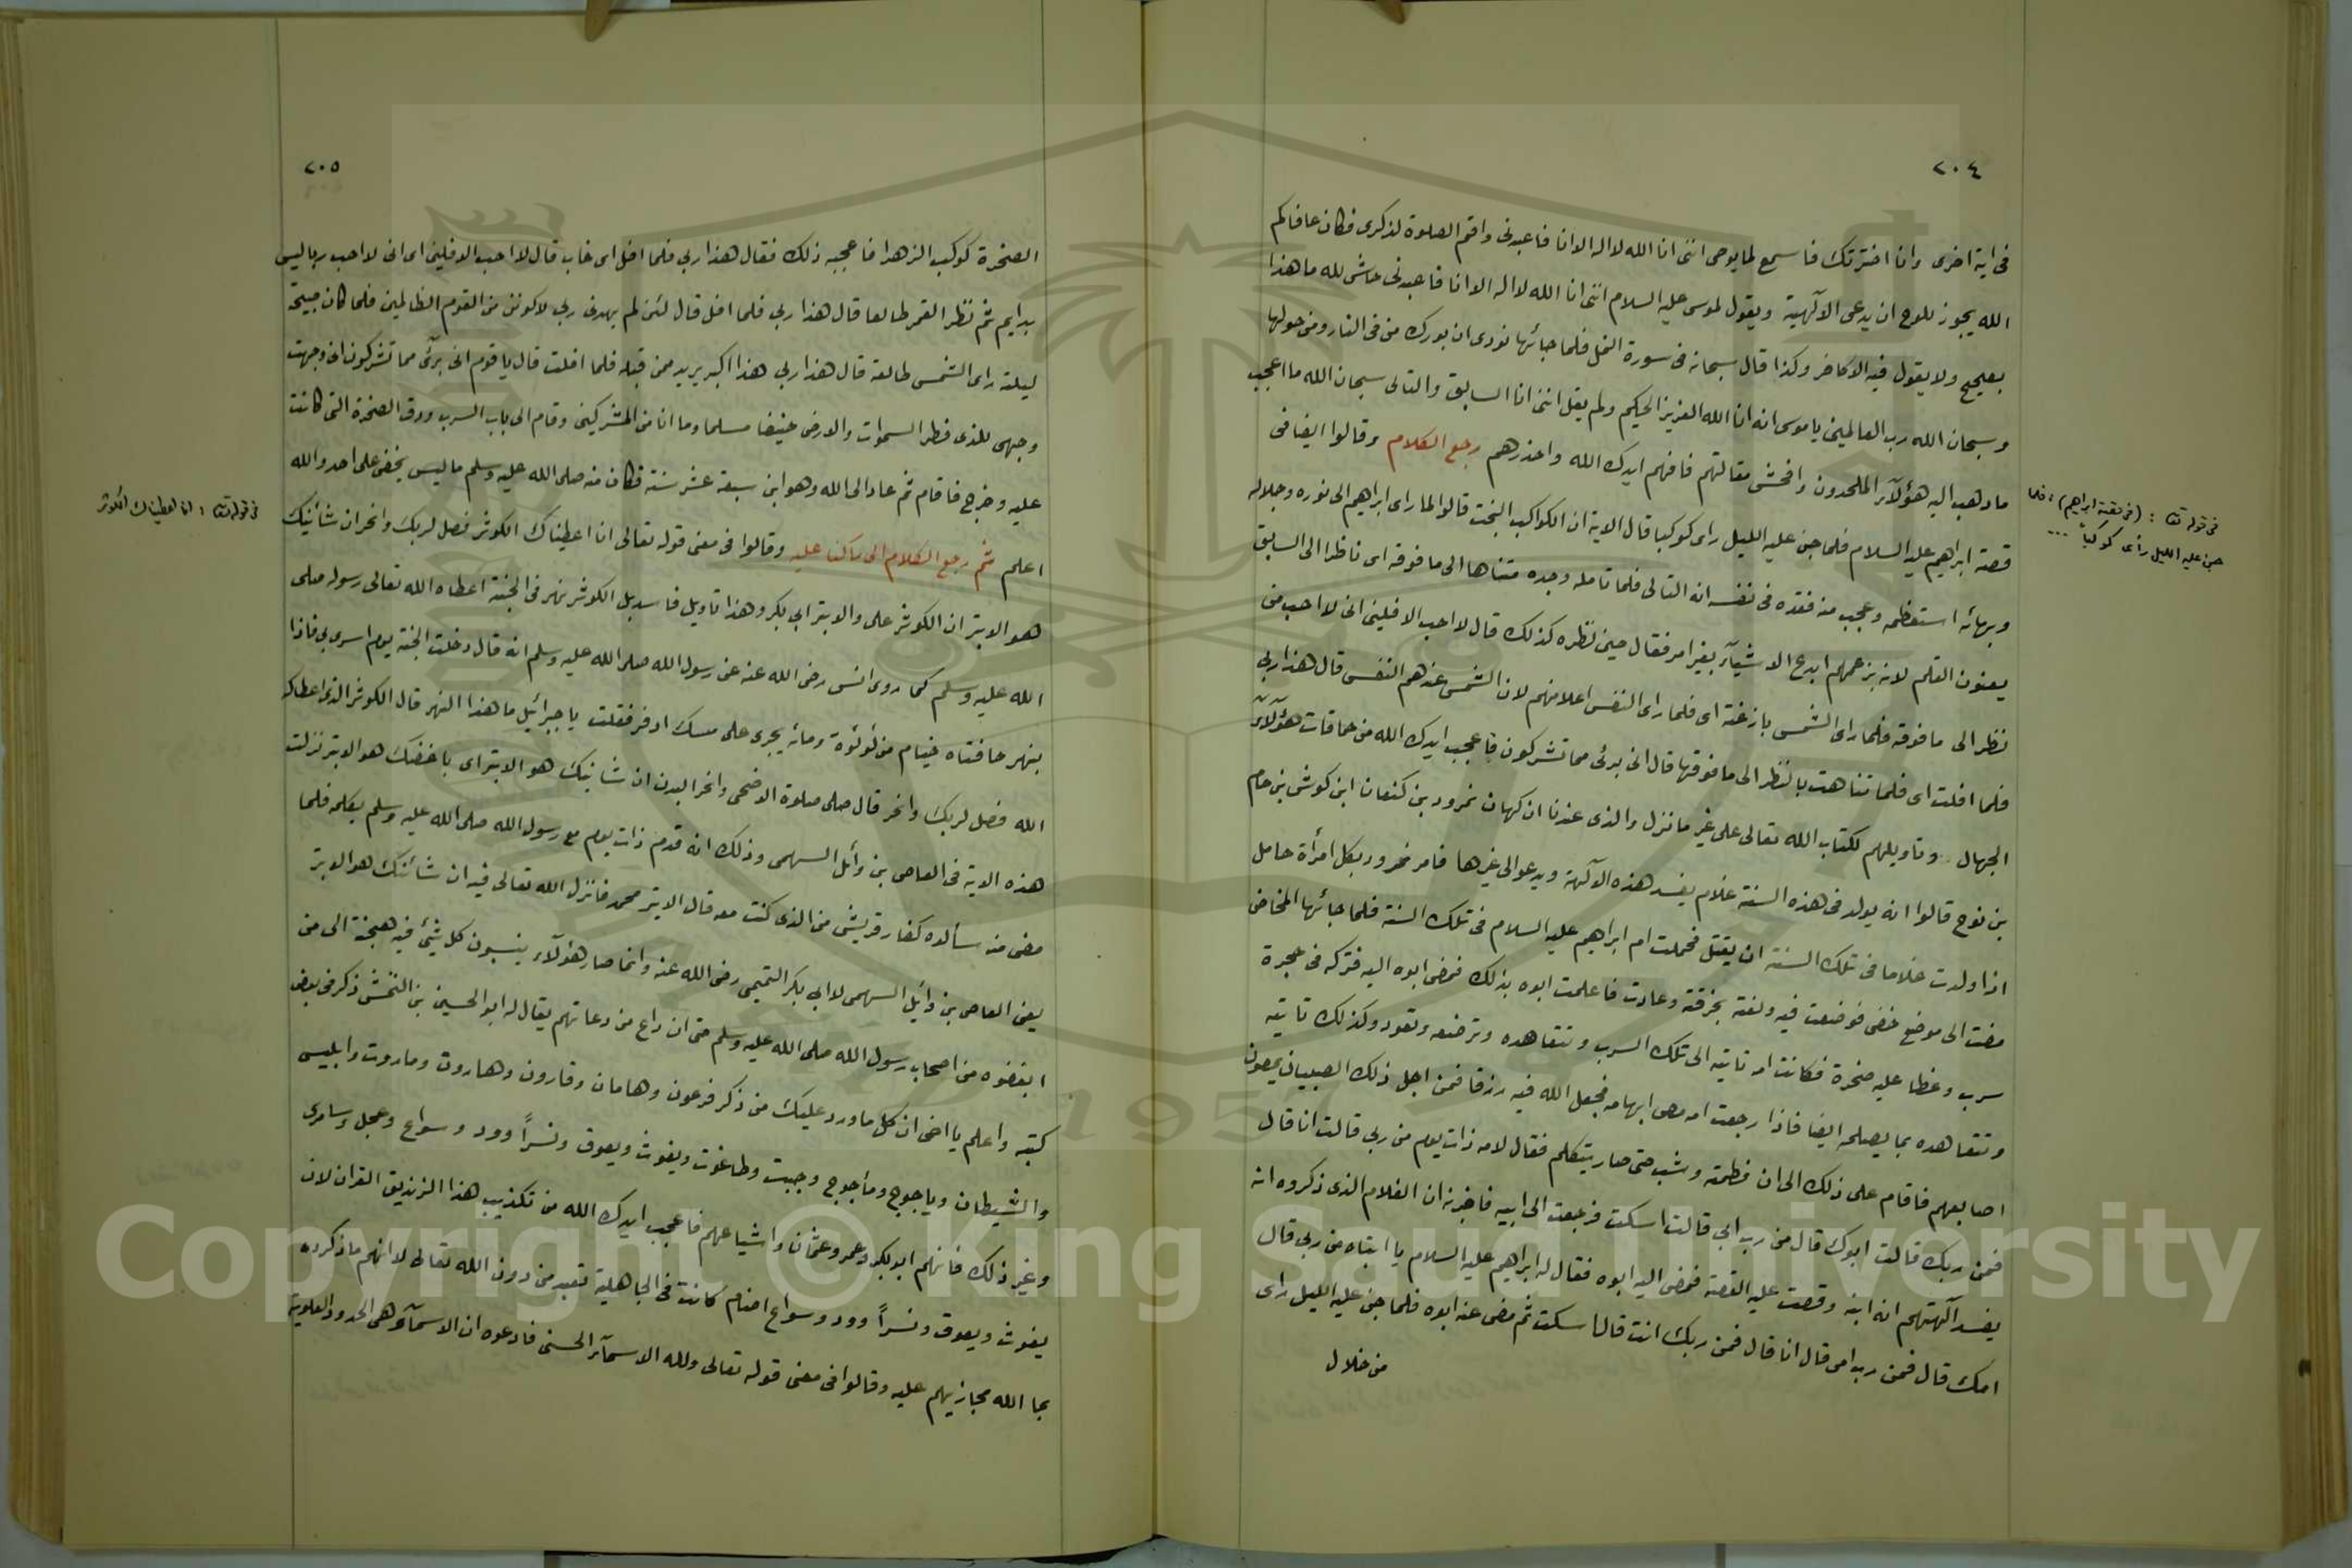 ٢٠٤
فى اية اخرى وانا اخترتك فاسمع لما يوحى اننى انا الله لا اله الا انا فاعبدنى واقم الصلوة لذكرى فكان عافاكم
الله يجوز للوح ان يدعى الآلهية ويقول لموسى عليه السلام اننى انا الله لا اله الا انا فاعبدنى حاشى لله ما هذا
بصحيح ولا يقول فيه الا كافر وكذا قال سبحانه فى سورة النمل فلما جائها نودى ان بورك من فى النار ومن حولها
وسبحان الله رب العالمين يا موسى انه انا الله العزيز الحكيم ولم يقل اننى انا السابق والتالى سبحان الله ما اعجب
ما ذهب اليه هؤلآء الملحدون وافحش مقالتهم فافهم ايدك الله واحذرهم رجع الكلام وقالوا ايضا فى
قصة ابراهيم عليه السلام فلما جن عليه الليل راى كوكبا قال الاية ان الكواكب البخت قالوا لما راى ابراهيم الى نوره وجلاله
وبهائه استعظمه وعجب منه فقده فى نفسه انه التالى فلما تامله وجده متناها الى ما فوقه اى ناظرا الى السابق
يعنون القلم لانه بزعمهم ابدع الاشيآء بغير امر فقال حين نظره كذلك قال لا احب الافلين انى لا احب من
نظر الى ما فوقه فلما راى الشمس بازغة اى فلما راى النفس اعلا منهم لان الشمس عندهم النفس قال هذا ربى
فلما افلت اى فلما تناهت بالنظر الى ما فوقها قال انى برئ مما تشركون فاعجب ايدك الله من حماقات هؤلآء
الجهال وتاويلهم لكتاب الله تعالى على غير ما نزل والذى عندنا ان كهان نمرود بن كنعان ابن كوش بن حام
بن نوح قالوا انه يولد فى هذه السنة غلام يفسد هذه الآلهة ويدعو الى غيرها فامر نمرود بكل امرأة حامل
اذا ولدت غلاما فى تلك السنة ان يقتل فحملت ام ابراهيم عليه السلام فى تلك السنة فلما جائها المخاض
مضت الى موضع خفى فوضعت فيه ولفته بخرقة وعادت فاعلمت ابوه بذلك فمضى ابوه اليه فتركه فى حجرة
سرب وغطا عليه صخرة فكانت امه تاتيه الى تلك السرب وتتعاهده وترضعه وتعود وكذلك تاتيه
وتتعاهده بما يصلحه ايضا فاذا رجعت امه مص ابهامه فجعل الله فيه رزقا فمن اجل ذلك الصبيان يمصون
اصابعهم فاقام على ذلك الى ان فطمته وشب حتى صار يتكلم فقال لامه ذات يوم من ربى قالت انا قال
فمن ربك قالت ابوك قال من رب ابى قالت اسكت فرجعت الى ابيه فاخبرته ان الغلام الذى ذكروه انه
يفسد آلهتهم انه ابنه وقصت عليه القصة فمضى اليه ابوه فقال له ابراهيم عليه السلام يا ابتاه من ربى قال
امك قال فمن رب امى قال انا قال فمن ربك انت قال اسكت ثم مضى عنه ابوه فلما جن عليه الليل راى
من خلال
فى قوله تعا : (فى قصة ابراهيم) : فلما
جن عليه الليل رأى كوكبا ...
٢٠٥
الصخرة كوكب الزهرا فاعجبه ذلك فقال هذا ربى فلما افل اى غاب قال لا احب الافلين اى انى لا احب ربا ليس
بدايم ثم نظر القمر طالعا قال هذا ربى فلما افل قال لئن لم يهدنى ربى لاكونن من القوم الظالمين فلما كان صبيحة
ليلته راى الشمس طالعة قال هذا ربى هذا اكبر يريد ممن قبله فلما افلت قال يا قوم انى برئ مما تشركون انى وجهت
وجهى للذى فطر السموات والارض حنيفا مسلما وما انا من المشركين وقام الى باب السرب ودق الصخرة التى كانت
عليه وخرج فاقام ثم عاد الى الله وهو ابن سبعة عشر سنة فكان منه صلى الله عليه وسلم ما ليس يخفى على احد والله
اعلم ثم رجع الكلام الى ما كنا عليه وقالوا فى معنى قوله تعالى انا اعطيناك الكوثر فصل لربك وانحر ان شانيك
هو الابتر ان الكوثر على والابتر ابى بكر وهذا تاويل فاسد بل الكوثر نهر فى الجنة اعطاه الله تعالى رسوله صلى
الله عليه وسلم كما روى انس رضى الله عنه عن رسول الله صلى الله عليه وسلم انه قال دخلت الجنة يوم اسرى بى فاذا
بنهر حافتاه خيام من لؤلؤة ومائه يجرى على مسك ادفر فقلت يا جبرائيل ما هذا النهر قال الكوثر الذى اعطاكه
الله فصل لربك وانحر قال صلى صلوة الاضحى وانحر البدن ان شانيك هو الابتر اى باغضك هو الابتر نزلت
هذه الاية فى العاص بن وائل السهمى وذلك انه قدم ذات يوم مع رسول الله صلى الله عليه وسلم يكلمه فلما
مضى منه سألوه كفار قريش من الذى كنت معه قال الابتر محمد فانزل الله تعالى فيه ان شانئك هو الابتر
يعنى العاص بن وائل السهمى لا ابى بكر التميمى رضى الله عنه وانما صار هؤلآء ينسبون كل شئ فيه هجنة الى من
ابغضوه من اصحاب رسول الله صلى الله عليه وسلم حتى ان داع من دعاتهم يقال له ابو الحسين بن ذكر فى بعض
كتبه واعلم يا اخى ان كل ما ورد عليك من ذكر فرعون وهامان وقارون وهاروت وماروت وابليس
والشيطان وياجوج وماجوج وجبت وطاغوت ويغوث ويعوق ونسراً وود وسواع وعجل وسامرى
وغير ذلك فانهم ابو بكر وعمر وعثمان واشياعهم فاعجب ايدك الله من تكذيب هذا الزنديق القران لان
يغوث ويعوق ونسراً وود وسواع اصنام كانت فى الجاهلية تعبد من دون الله تعالى لا انهم ما ذكروه
بما الله مجازيهم عليه وقالوا فى معنى قوله تعالى ولله الاسمآء الحسنى فادعوه ان الاسمآء هى الحدود العلوية
فى قوله تعا : انا اعطيناك الكوثر
1957
Copyright © King Saud University